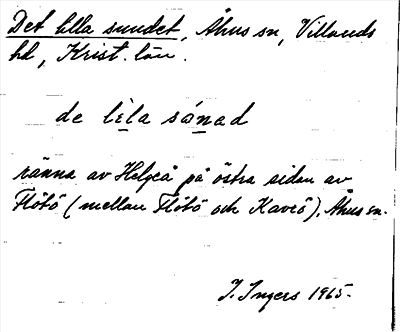 Det lilla sundet, Åhus sn, Villands
hd, Krist. län.
de lịla sáṉad
ränna av Helgeå på östra sidan av
Flötö (mellan Flötö och Kaveö), Åhus sn.
I. Ingers 1965.